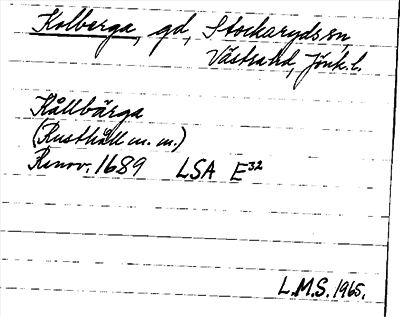 Kolberga, gd, Stockaryds sn,
Västra hd, Jönk. l.
Kållbärga
(Rusthåll m. m.)
Renov. 1689 LSA E32
L.M.S. 1965.